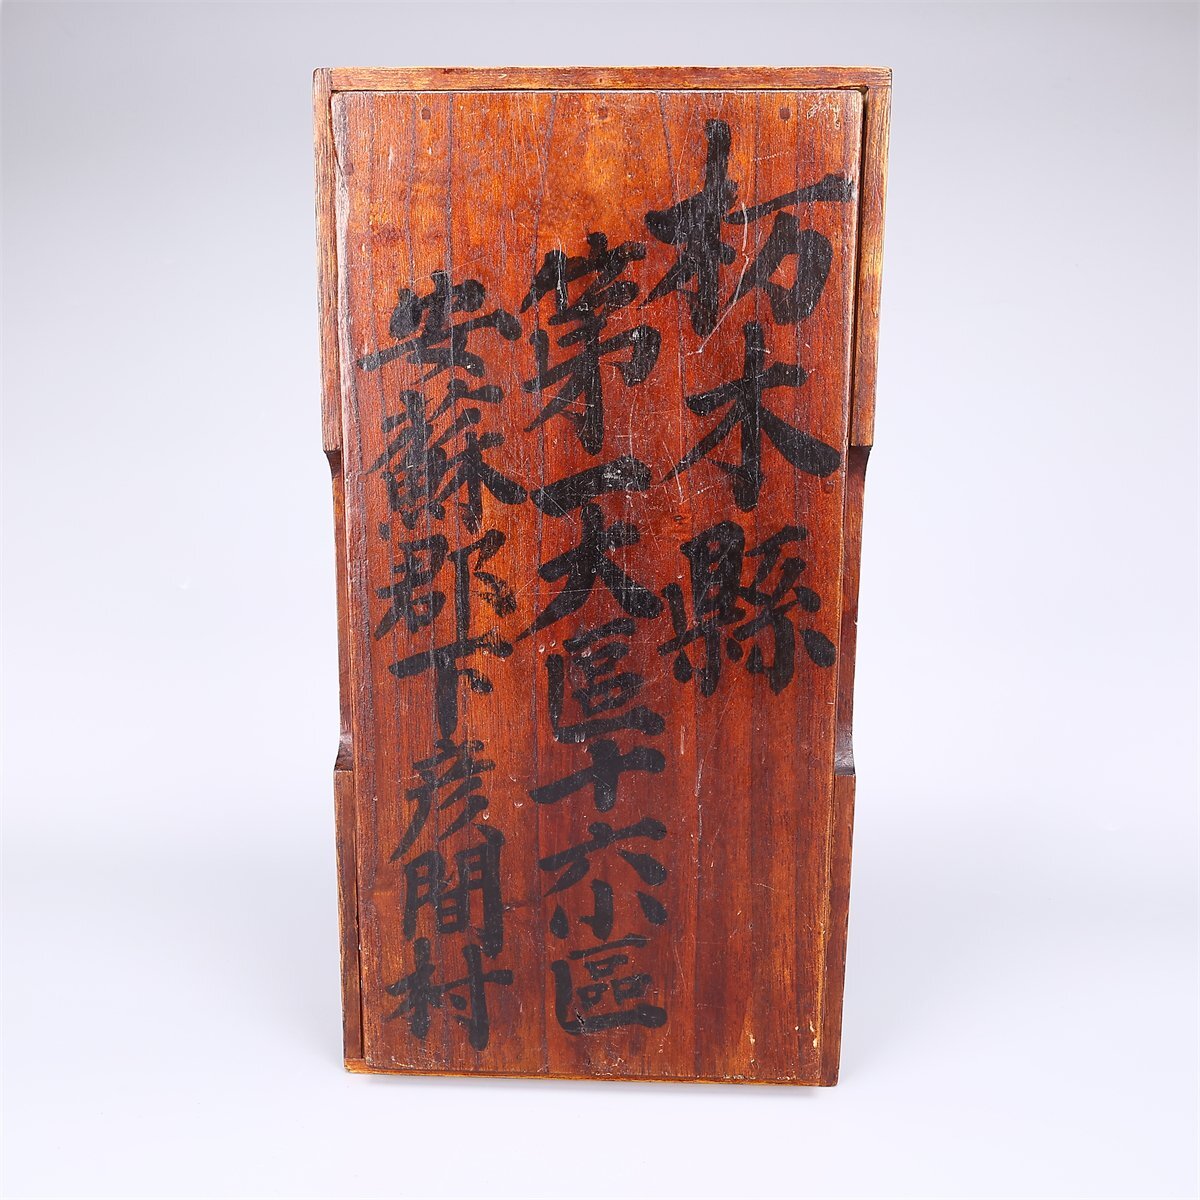 栃木縣
第一大區十六小區
安蘇郡下彦間村